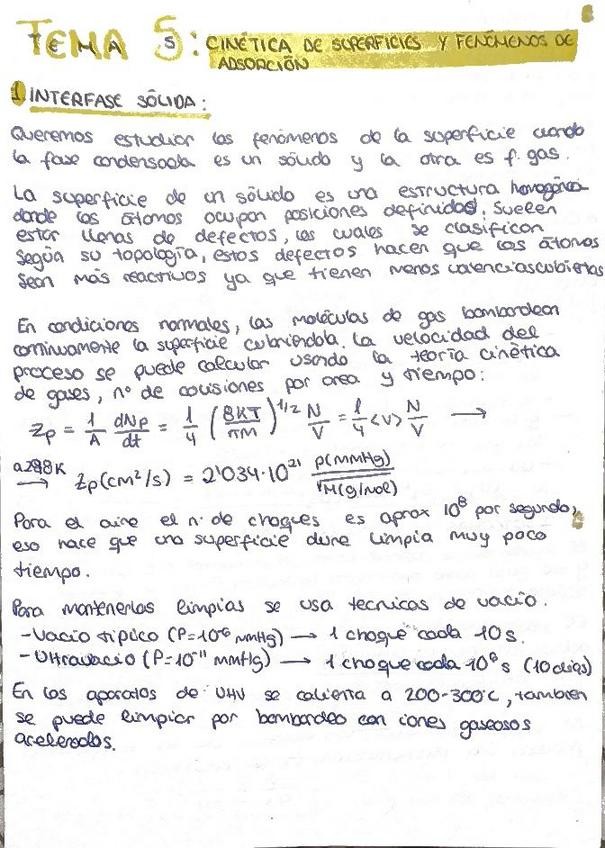 TEMA 5: CINÉTICA DE SUPERFICIES Y FENÓMENOS DE
ADSORCIÓN
1 INTERFASE SÓLIDA:
Queremos estudiar los fenómenos de la superficie cuando
la fase condensada es un sólido y la otra es f. gas.
La superficie de un sólido es una estructura homogénea
donde los átomos ocupan posiciones definidas. Suelen
estar llenas de defectos, los cuales se clasifican
según su topología, estos defectos hacen que los átomos
sean más reactivos ya que tienen menos valencias cubiertas
En condiciones normales, las moléculas de gas bombardean
continuamente la superficie cubriéndola. La velocidad del
proceso se puede calcular usando la teoría cinética
de gases, nº de colisiones por area y tiempo:
Zp = 1/A dNp/dt = 1/4 (8KT/πM)^1/2 N/V = 1/4 <v> N/V →
a 298K → Zp(cm²/s) = 2'034·10²¹ p(mmHg)/√M(g/mol)
Para el aire el nº de choques es aprox 10⁸ por segundo,
eso hace que una superficie dure limpia muy poco
tiempo.
Para mantenerlas limpias se usa tecnicas de vacío.
- Vacío típico (P=10⁻⁶ mmHg) → 1 choque cada 10 s.
- Ultravacío (P=10⁻¹¹ mmHg) → 1 choque cada 10⁶ s (10 días)
En los aparatos de UHV se calienta a 200-300ºC, también
se puede limpiar por bombardeo con iones gaseosos
acelerados.